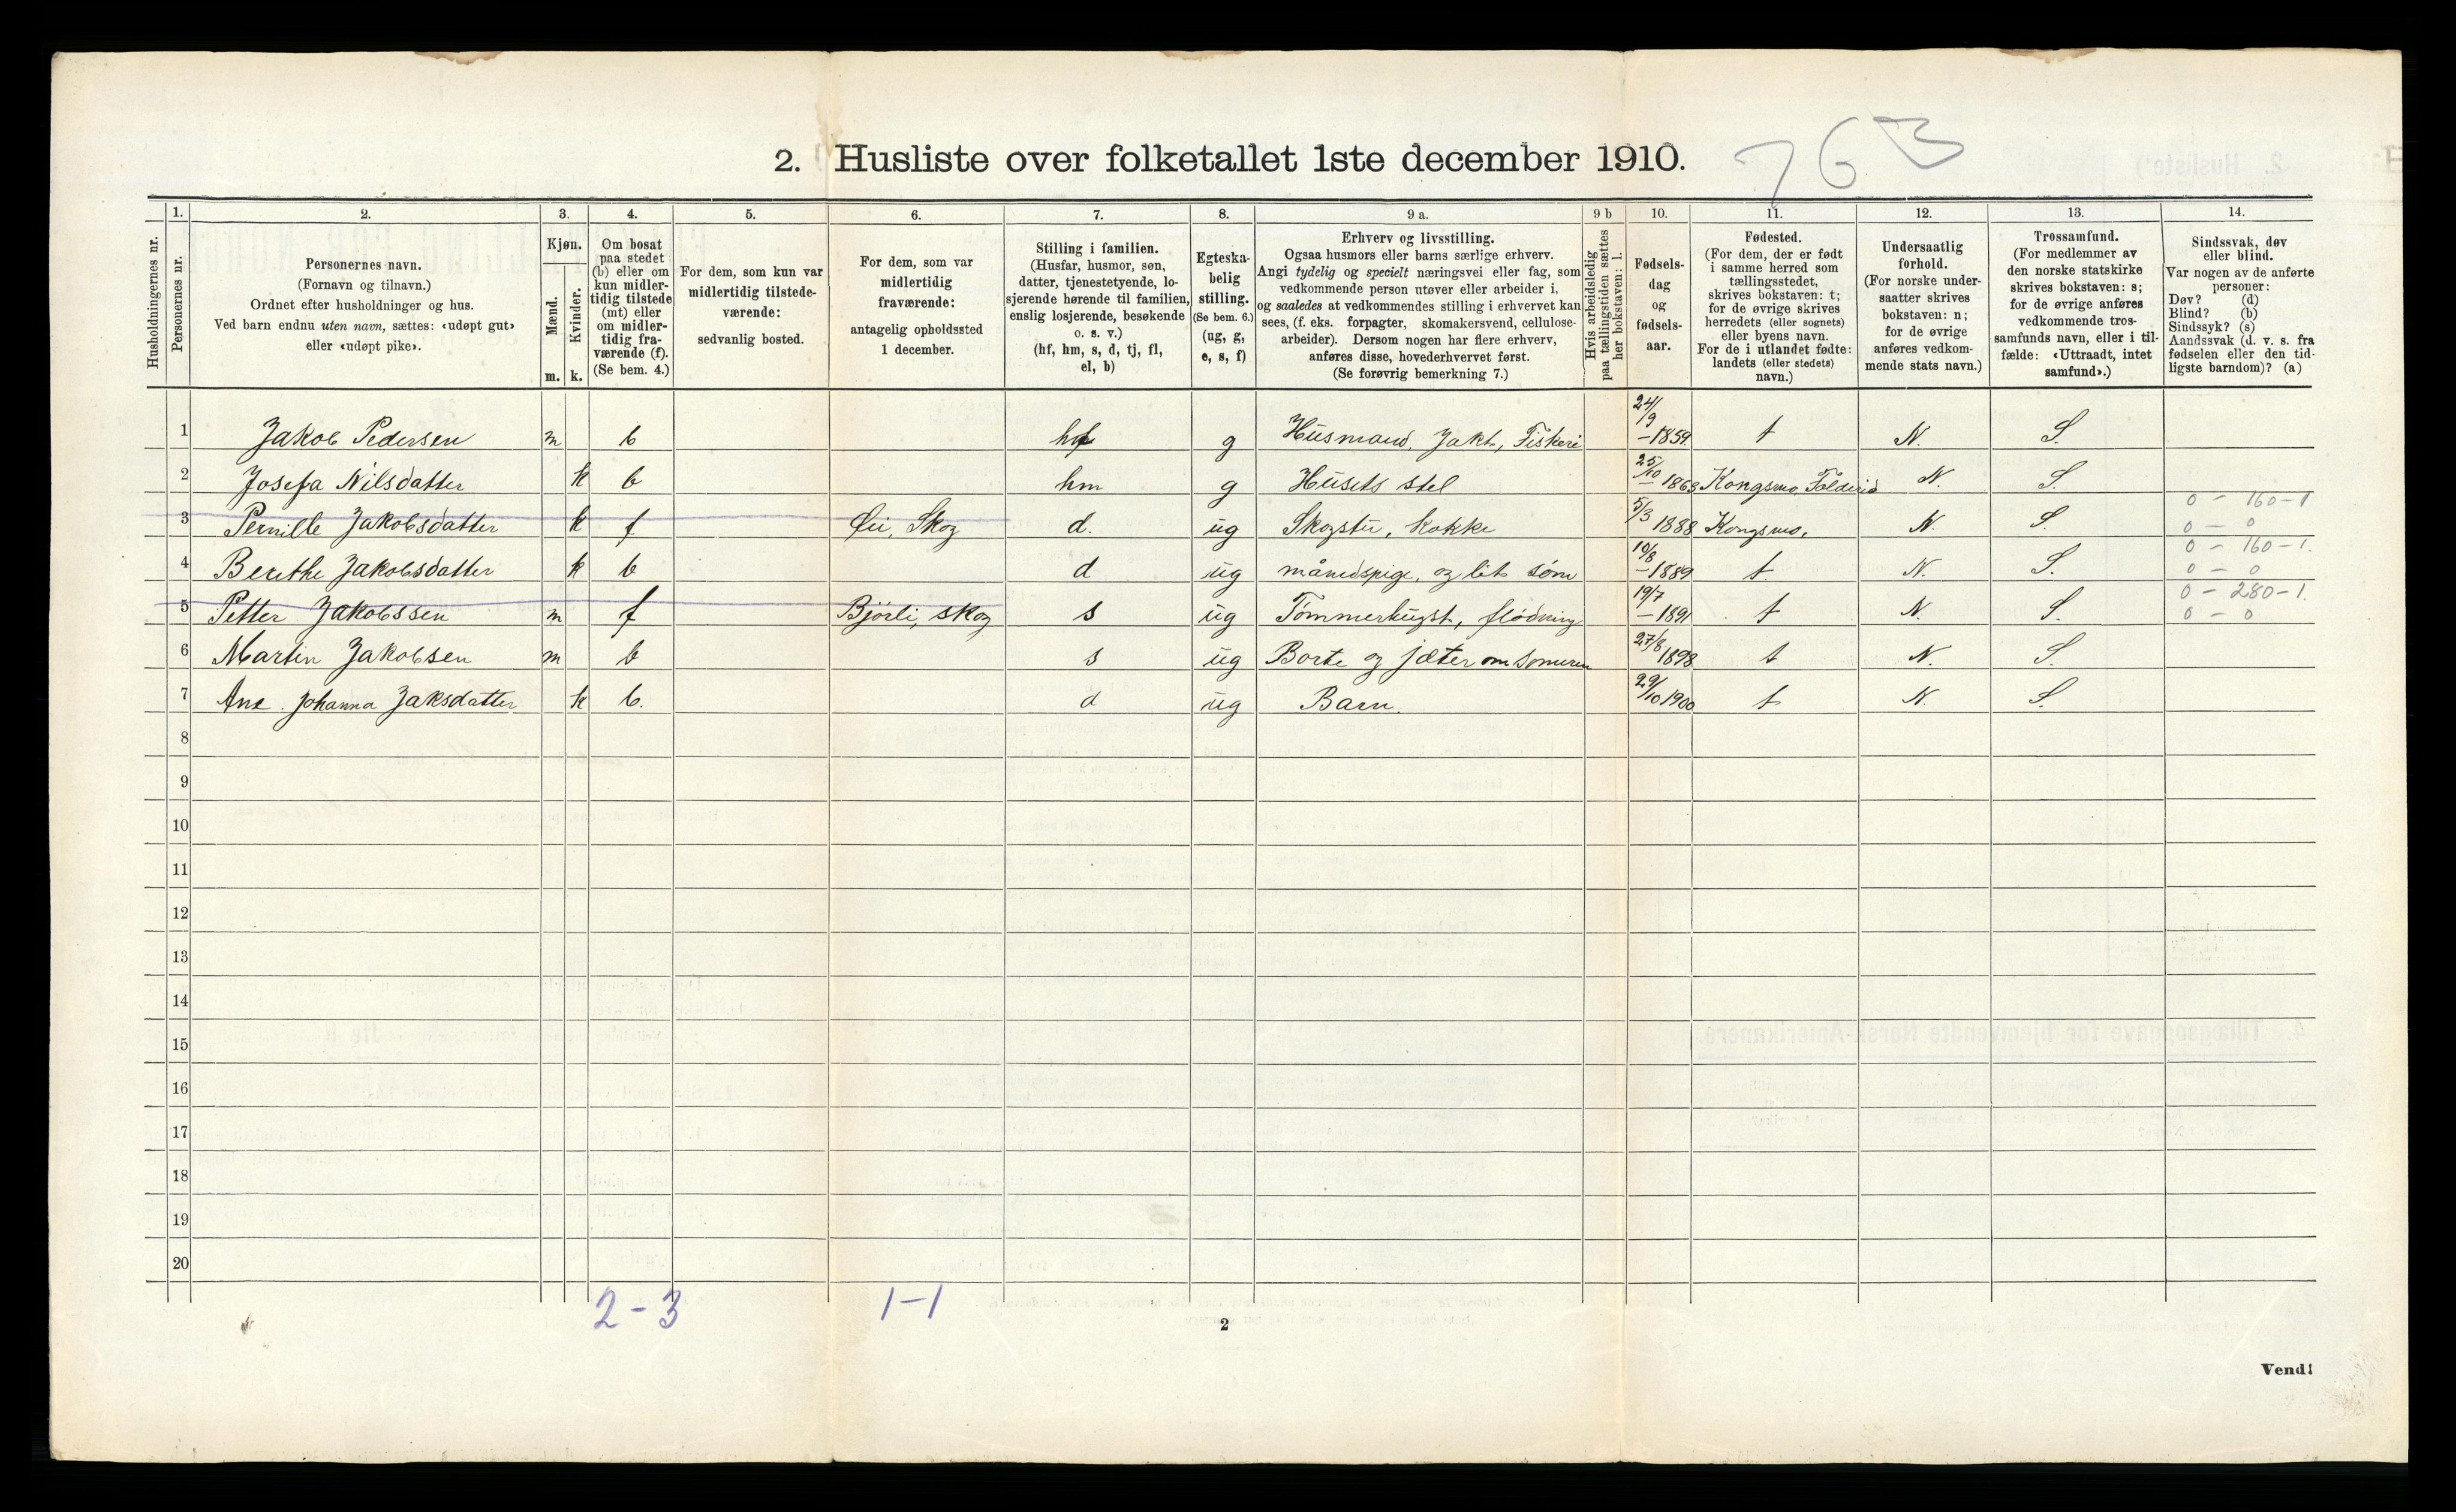 763
2. Husliste over folketallet 1ste december 1910.
Husholdningernes nr.
1. Personernes nr.
2. Personernes navn. (Fornavn og tilnavn.) Ordnet efter husholdninger og hus. Ved barn endnu uten navn, sættes: «udøpt gut» eller «udøpt pike».
3. Kjøn. Mænd. m. Kvinder. k.
4. Om bosat paa stedet (b) eller om kun midler-tidig tilstede (mt) eller om midler-tidig fra-værende (f). (Se bem. 4.)
5. For dem, som kun var midlertidig tilstede-værende: sedvanlig bosted.
6. For dem, som var midlertidig fraværende: antagelig opholdssted 1 december.
7. Stilling i familien. (Husfar, husmor, søn, datter, tjenestetyende, lo-sjerende hørende til familien, enslig losjerende, besøkende o. s. v.) (hf, hm, s, d, tj, fl, el, b)
8. Egteska-belig stilling. (Se bem. 6.) (ug, g, e, s, f)
9 a. Erhverv og livsstilling. Ogsaa husmors eller barns særlige erhverv. Angi tydelig og specielt næringsvei eller fag, som vedkommende person utøver eller arbeider i, og saaledes at vedkommendes stilling i erhvervet kan sees, (f. eks. forpagter, skomakersvend, cellulose-arbeider). Dersom nogen har flere erhverv, anføres disse, hovederhvervet først. (Se forøvrig bemerkning 7.)
9 b Hvis arbeidsledig paa tællingstiden sættes her bokstaven: l.
10. Fødsels-dag og fødsels-aar.
11. Fødested. (For dem, der er født i samme herred som tællingsstedet, skrives bokstaven: t; for de øvrige skrives herredets (eller sognets) eller byens navn. For de i utlandet fødte: landets (eller stedets) navn.)
12. Undersaatlig forhold. (For norske under-saatter skrives bokstaven: n; for de øvrige anføres vedkom-mende stats navn.)
13. Trossamfund. (For medlemmer av den norske statskirke skrives bokstaven: s; for de øvrige anføres vedkommende tros-samfunds navn, eller i til-fælde: «Uttraadt, intet samfund».)
14. Sindssvak, døv eller blind. Var nogen av de anførte personer: Døv? (d) Blind? (b) Sindssyk? (s) Aandssvak (d. v. s. fra fødselen eller den tid-ligste barndom)? (a)
1 Jakob Pedersen m b hf g Husmand, Jakt, Fiskeri 24/9 - 1859. t N. S.
2 Josefa Nilsdatter k b hm g Husets stel 25/10 1863 Kongsmo, Foldereid N. S.
3 Pernille Jakobsdatter k f Øie, Skog d. ug Skogstu, kokke 5/3 1888 Kongsmo, N. S. 0 - 160 - 1 0 - 0
4 Berethe Jakobsdatter k b d ug månedspige, og lit søm 10/8 - 1889 t N. S. 0 - 160 - 1. 0 - 0
5 Petter Jakobssen m f Bjørli, skog s ug Tømmerhugst, flødning 19/7 - 1891 t N. S. 0 - 280 - 1. 0 - 0
6 Martin Jakobsen m b s ug Borte og jæter om someren 27/8 1898 t N. S.
7 Ane Johanna Jaksdatter k b. d ug Barn. 29/10 1900 t N. S.
8
9
10
11
12
13
14
15
16
17
18
19
20
2 - 3 1 - 1
2
Vend!